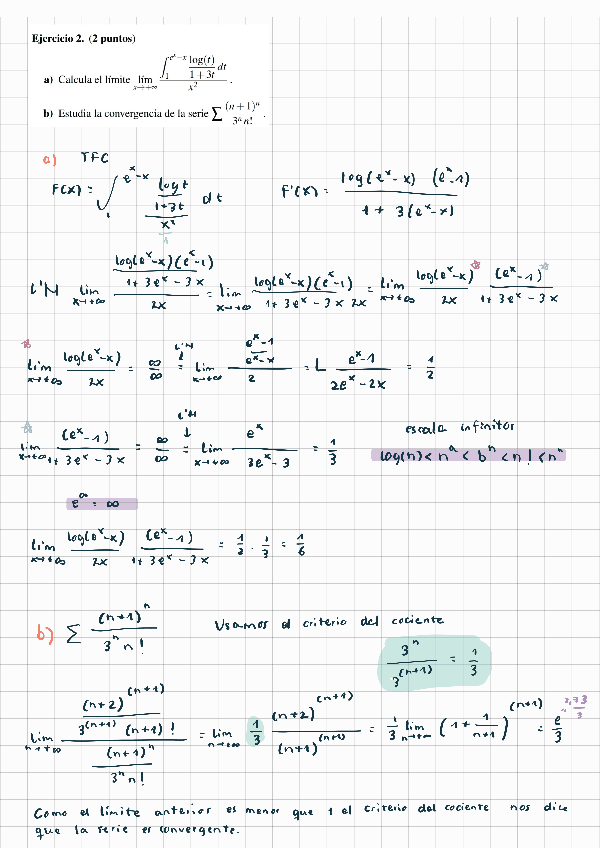 Ejercicio 2. (2 puntos)
a) Calcula el límite lím x→+∞ (∫_1^{e^x−x} log(t)/(1+3t) dt) / x² .
b) Estudia la convergencia de la serie ∑ (n+1)^n / (3^n n!) .
a) TFC
F(x) = ∫_1^{e^x-x} (log t / (1+3t)) / x² dt    F'(x) = log(e^x-x) (e^x-1) / (1 + 3(e^x-x))
L'H lim x→+∞ (log(e^x-x)(e^x-1) / (1+3e^x-3x)) / 2x = lim x→+∞ log(e^x-x)(e^x-1) / (1+3e^x-3x 2x) = lim x→+∞ log(e^x-x) / 2x (e^x-1) / (1+3e^x-3x)
lim x→+∞ log(e^x-x) / 2x = ∞/∞ = L'H ↓ lim x→+∞ ((e^x-1) / (e^x-x)) / 2 = L (e^x-1) / (2e^x-2x) = 1/2
lim x→+∞ (e^x-1) / (1+3e^x-3x) = ∞/∞ = L'H ↓ lim x→+∞ e^x / (3e^x-3) = 1/3
escala infinitor
log(n) < n^a < b^n < n! < n^n
e^∞ = ∞
lim x→+∞ log(e^x-x) / 2x (e^x-1) / (1+3e^x-3x) = 1/2 · 1/3 = 1/6
b) ∑ (n+1)^n / (3^n n!) Usamos el criterio del cociente
3^n / 3^(n+1) = 1/3
lim n→+∞ ((n+2)^(n+1) / (3^(n+1) (n+1)!)) / ((n+1)^n / (3^n n!)) = lim n→∞ 1/3 (n+2)^(n+1) / (n+1)^(n+1) = 1/3 lim n→+∞ (1 + 1/(n+1))^(n+1) = e/3
Como el límite anterior es menor que 1 el criterio del cociente nos dice
que la serie es convergente.